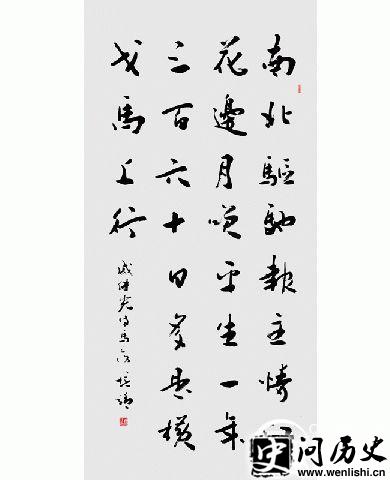 南北驅馳報主情江
花邊月咲平生一年
三百六十日多是橫
戈馬上行
戚继光
问历史
www.wenlishi.cn